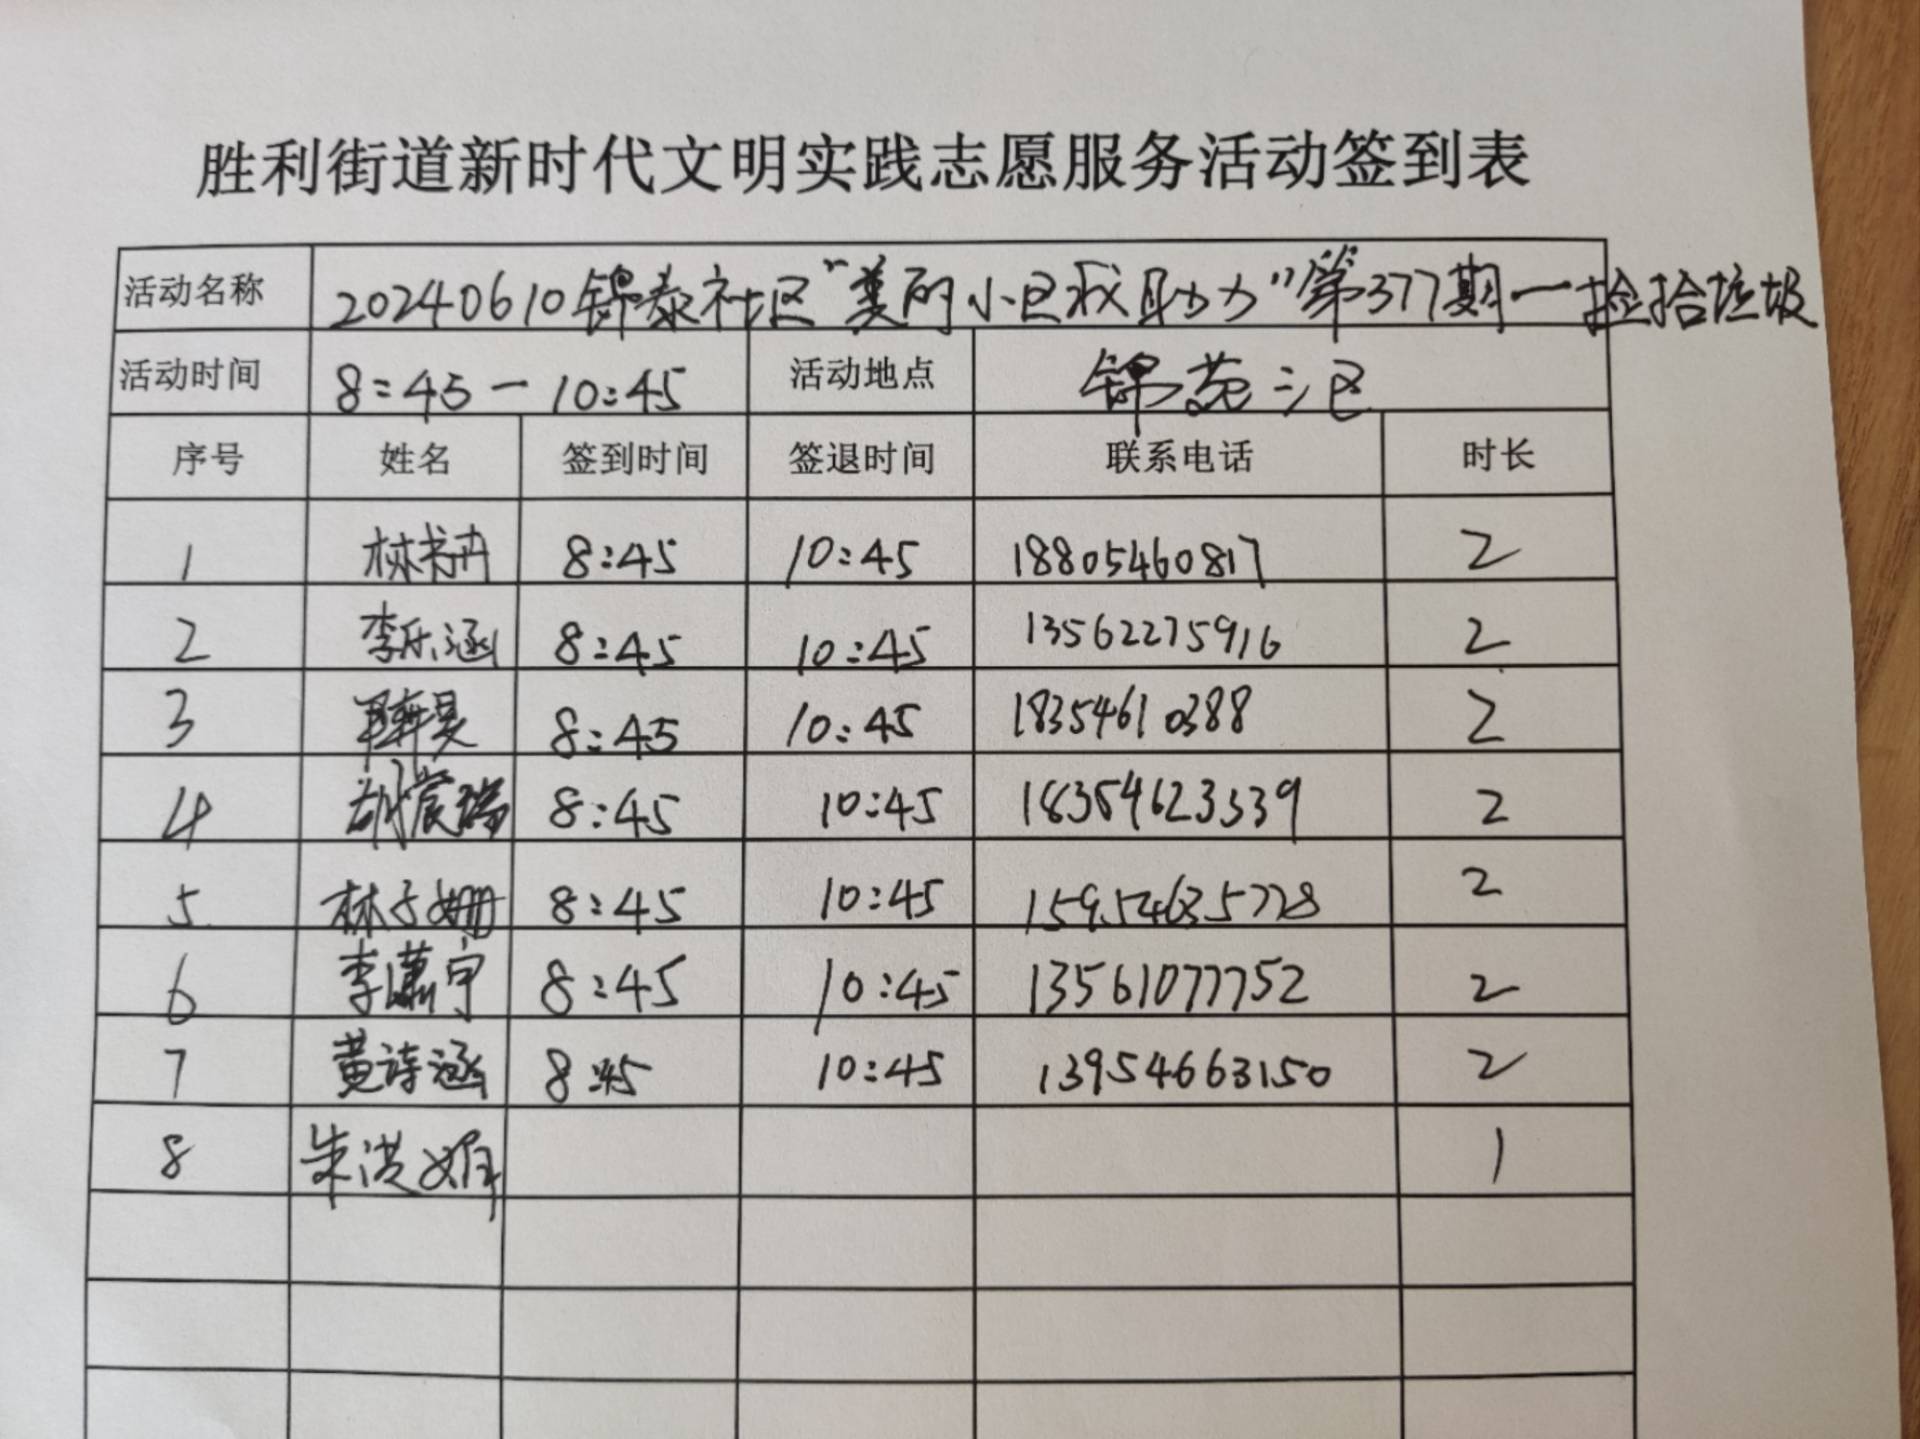 胜利街道新时代文明实践志愿服务活动签到表
活动名称 20240610锦泰社区“美丽小区我助力”第377期一捡拾垃圾
活动时间 8:45-10:45 活动地点 锦苑三区
序号 姓名 签到时间 签退时间 联系电话 时长
1 林书冉 8:45 10:45 18805460817 2
2 李乐涵 8:45 10:45 13562275916 2
3 8:45 10:45 18354610388 2
4 胡宸瑞 8:45 10:45 18354623339 2
5 林子姗 8:45 10:45 15954635728 2
6 李潇宇 8:45 10:45 13561077752 2
7 黄诗涵 8:45 10:45 13954663150 2
8 朱洪娟 1